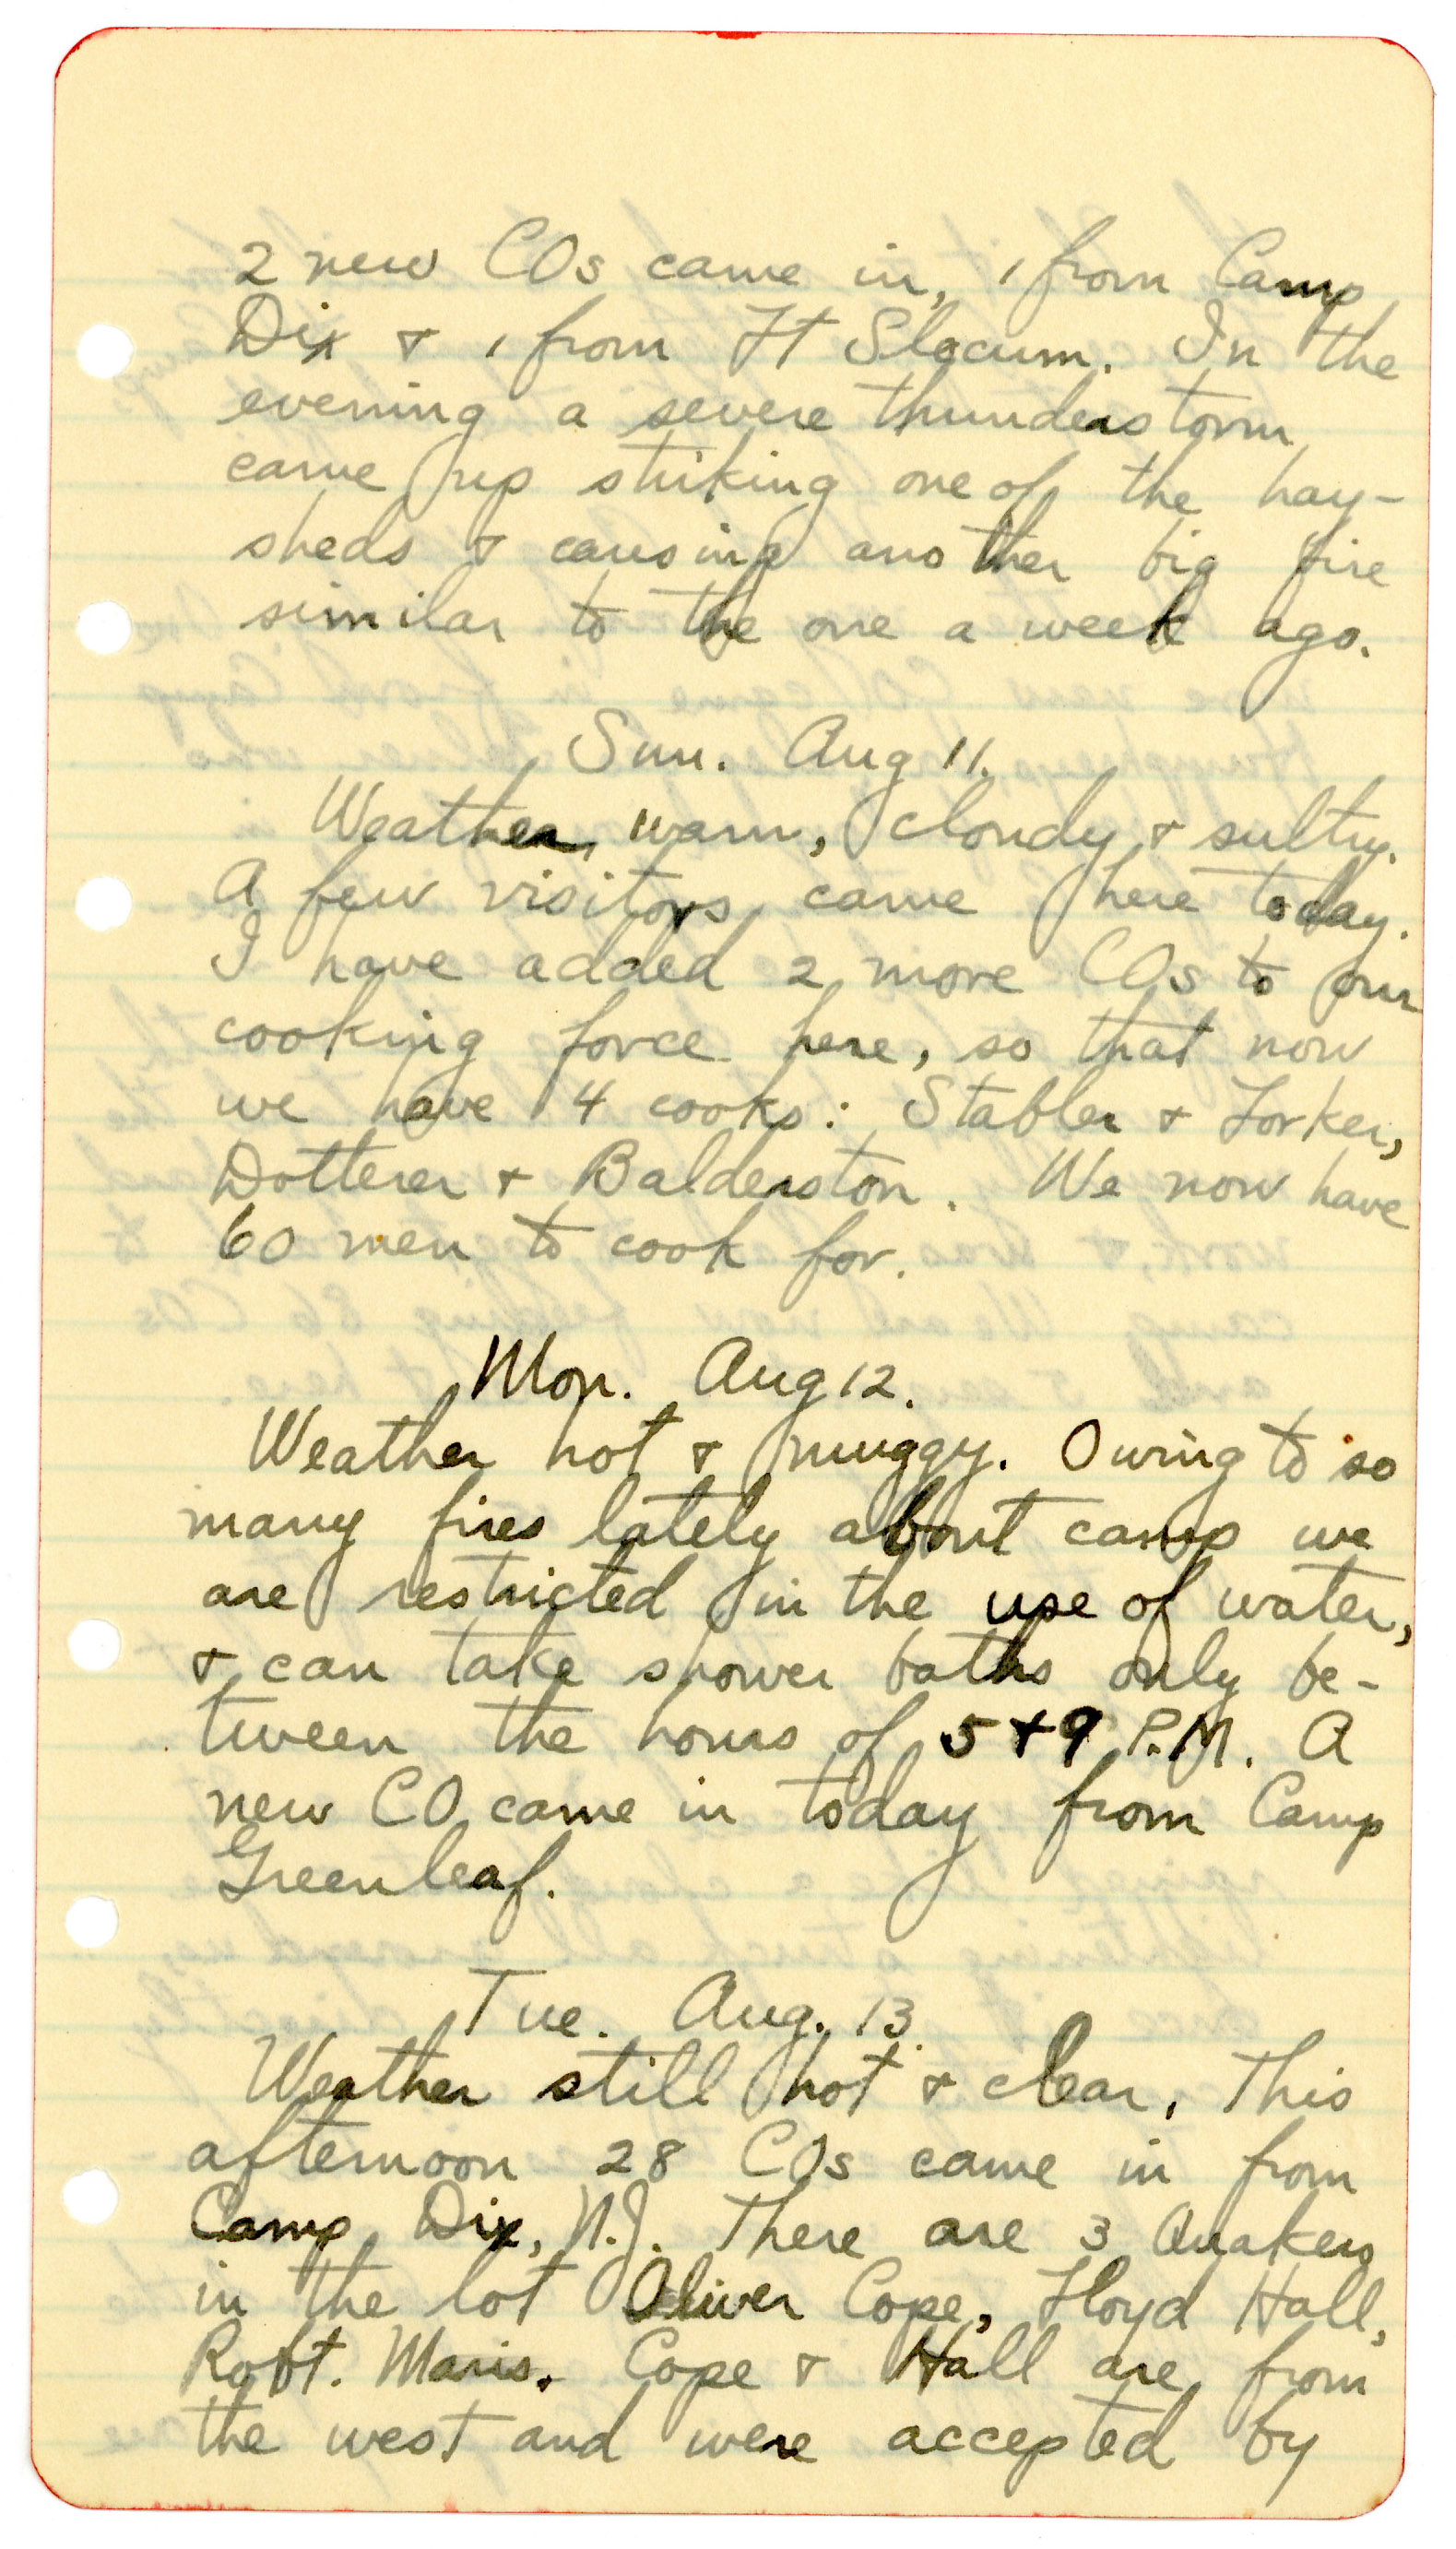 2 new COs came in, 1 from Camp
Dix & 1 from Ft Slocum. In the
evening a severe thunderstorm
came up striking one of the hay-
sheds & causing another big fire
similar to the one a week ago.
Sun. Aug 11.
Weather warm, cloudy & sultry.
A few visitors came here today.
I have added 2 more COs to our
cooking force here, so that now
we have 4 cooks: Stabler & Forker,
Dotterer & Balderston. We now have
60 men to cook for.
Mon. Aug 12.
Weather hot & muggy. Owing to so
many fires lately about camp we
are restricted in the use of water,
& can take shower baths only be-
tween the hours of 5 & 9 P.M. A
new CO came in today from Camp
Greenleaf.
Tue. Aug. 13.
Weather still hot & clear. This
afternoon 28 COs came in from
Camp Dix, N.J. There are 3 Quakers
in the lot Oliver Cope, Floyd Hall,
Robt. Maris. Cope & Hall are from
the west and were accepted by